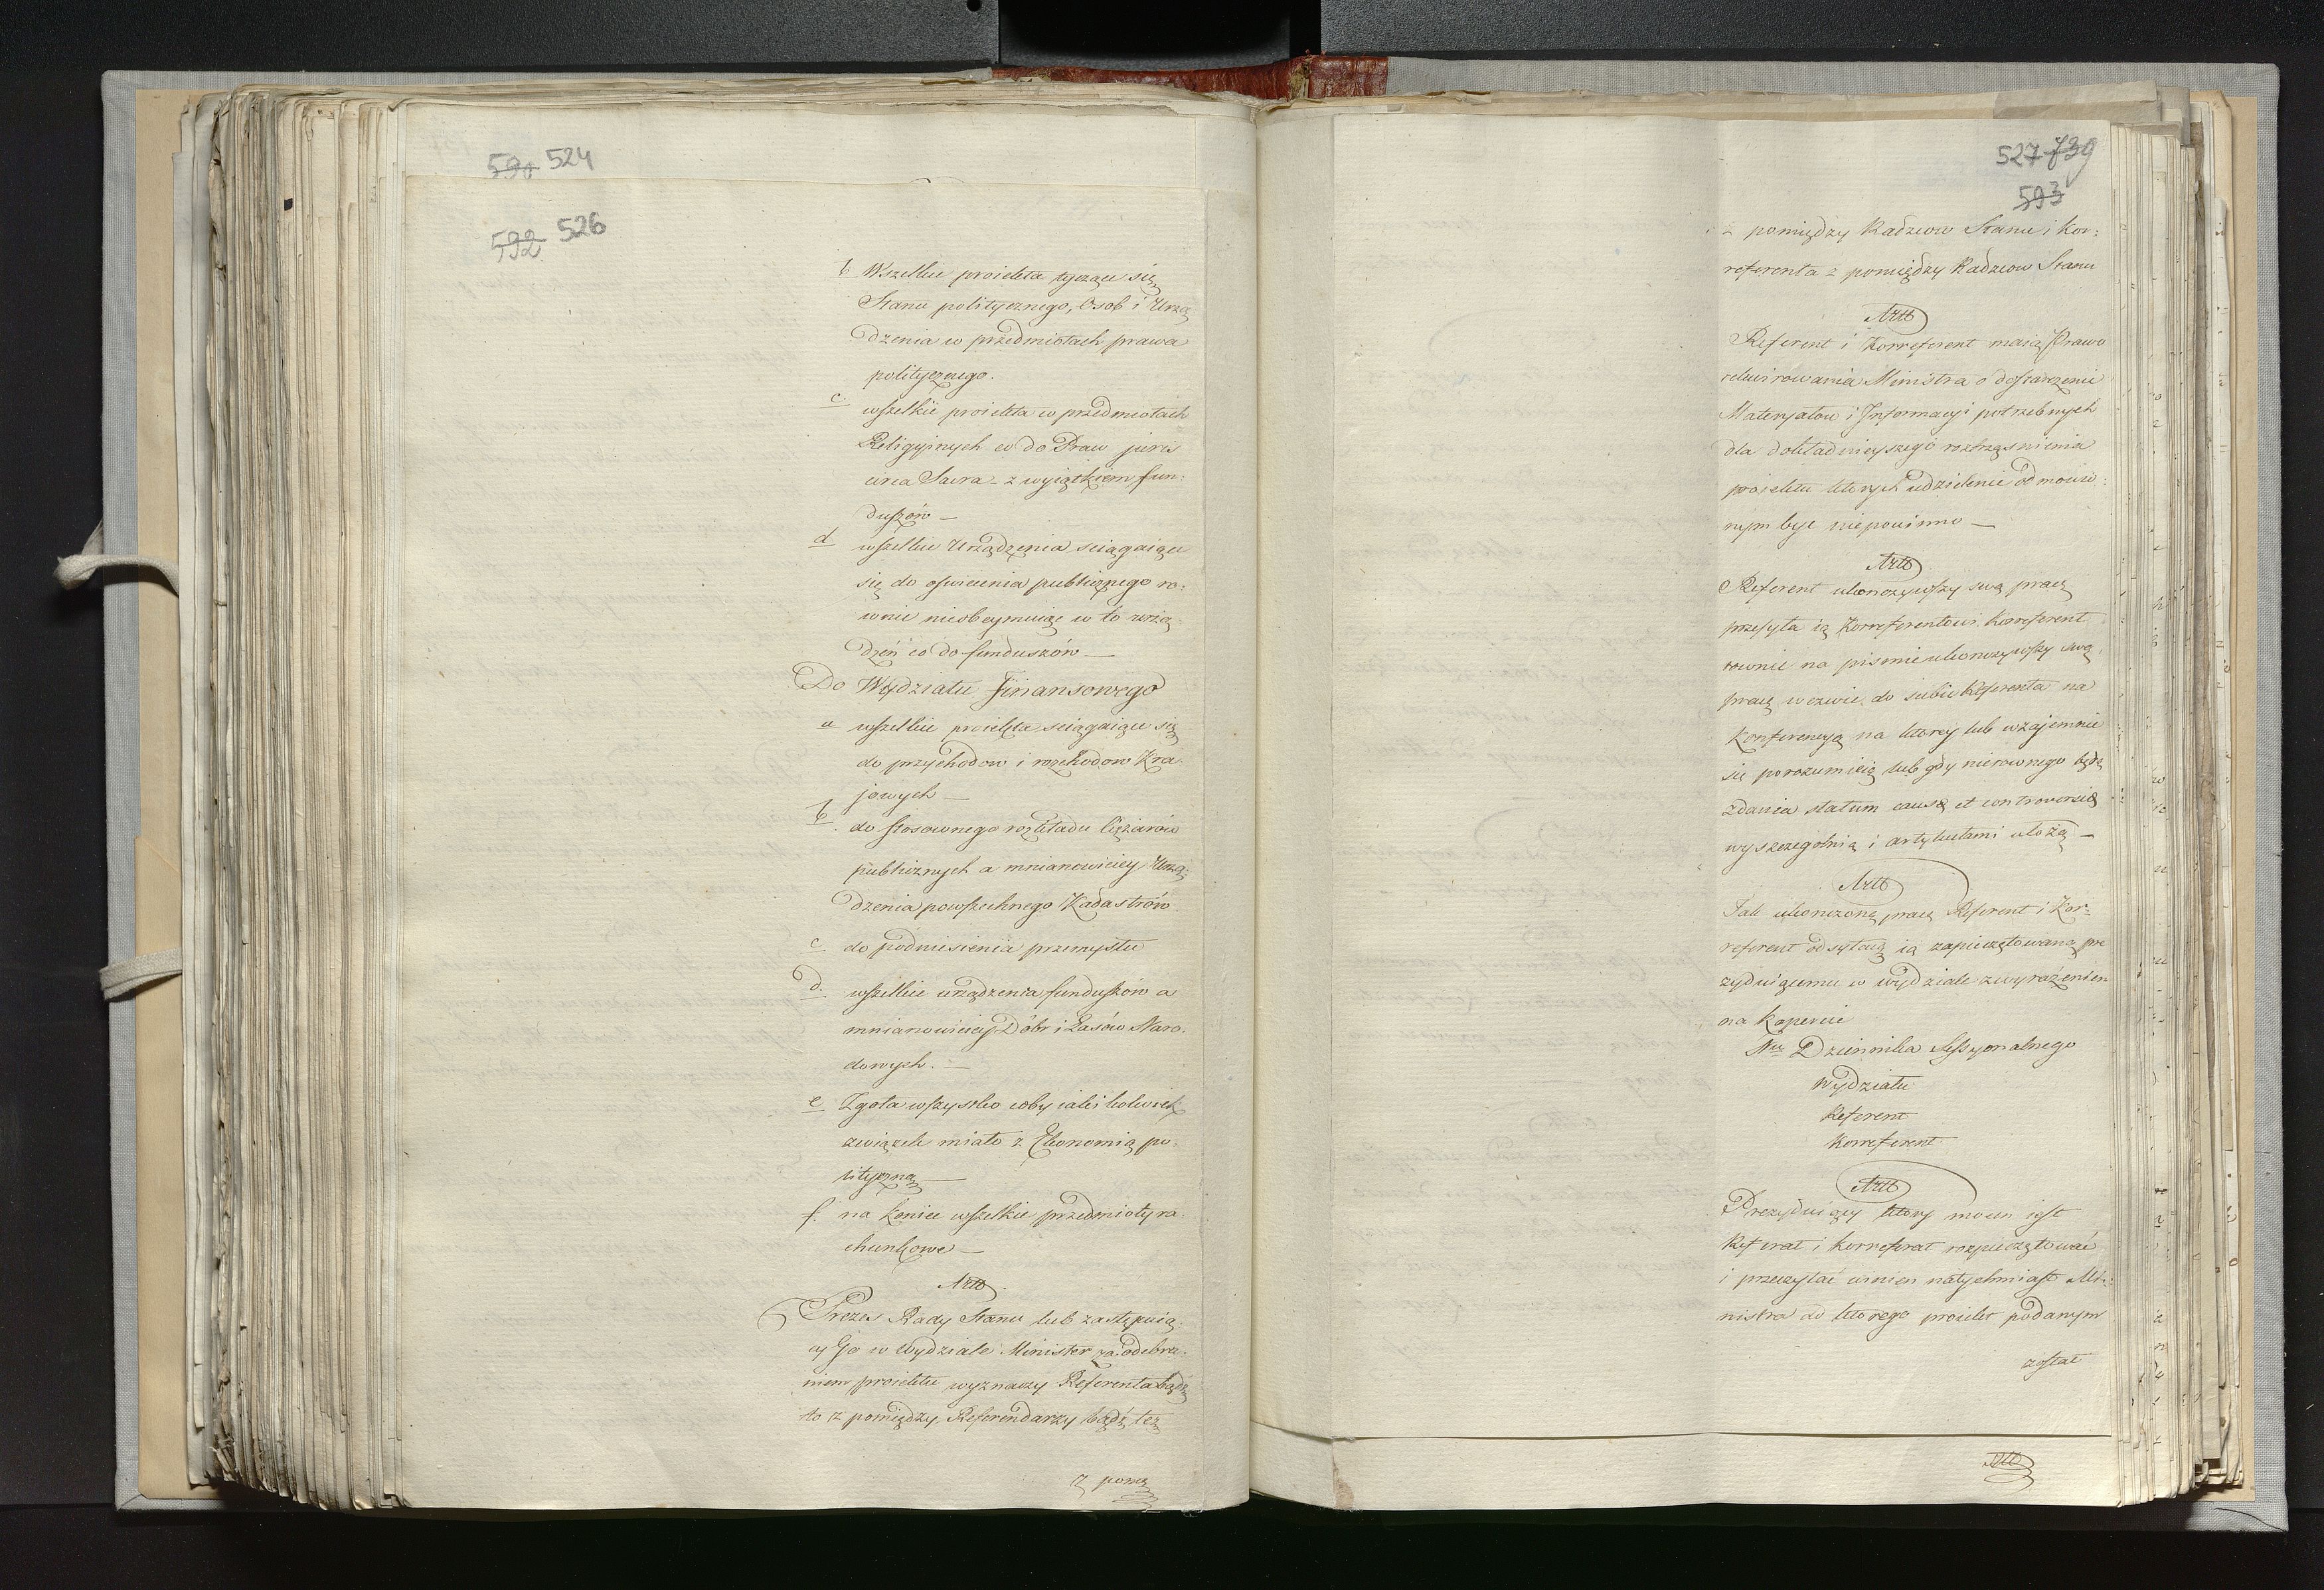 590 524
592 526
b Wszelkie proiekta tyczące się
Stanu politycznego, Osob i Urzą
dzenia w przedmiotach prawa
politycznego.
c. wszelkie proiekta w przedmiotach
Religyinych co do Praw juris
circa Sacra - z wyiątkiem fun:
duszów —
d wszelkie Urządzenia sciągaiące
się do oświecenia publicznego ro:
wnie nieobeymuiąc w to urzą
dzeń co do funduszów —
Do Wydziału Finansowego
a wszelkie proiekta sciągaiące się
do przychodow i rozchodow Kra:
jowych —
b. do stosownego rozkładu Ciężarów
publicznych a mnianowiciey Urzą:
dzenia powszechnego Kadastrów
c do podniesienia przemysłu
d. wszelkie urządzenia funduszów a
mnianowiciey Dóbr i Lasów Naro:
dowych. —
e Zgoła wszystko coby iakikolwiek
związek miało z Ekonomią po:
lityczną —
f. na koniec wszelkie przedmioty ra:
chunkowe —
Artt.
Prezes Rady Stanu lub zastępuią:
cy Go w Wydziale Minister za odebra:
niem proiektu wyznaczy Referenta bądź
to z pomiędzy Referendarzy bądź też
z pomię
527 739
593
z pomiędzy Radzcow Stanu i Kor:
referenta z pomiędzy Radzcow Stanu
Artt
Referent i Korreferent maią Prawo
rekwirowania Ministra o dostarczenie
Materyałow i Informacyi potrzebnych
dla dokładnieyszego roztrząśnienia
proiektu których udzielenie odmowio:
nym być niepowinno —
Artt
Referent ukonczywszy swą pracę
przesyła ią Korreferentowi. Korreferent
rownie na pismie ukonczywszy swą
pracę wezwie do siebie Referenta na
Konferencyą na ktorey lub wzajemnie
się porozumieią lub gdy nierownego będą
zdania statum causæ et controversiæ
wyszczegolnią i artykułami ułożą —
Artt
Tak ukonczoną pracę Referent i Kor:
referent odsyłaią ią zapieczętowaną pre
zyduiącemu w wydziale z wyrażeniem
na kopercie
Nu Dziennika Sessyonalnego
Wydziału
Referent
Korreferent
Artt
Prezyduiący ktory mocen iest
Referat i korreferat rozpieczętować
i przeczytać uwiem natychmiast Mi:
nistra od ktorego proiekt podanym
został
Artt